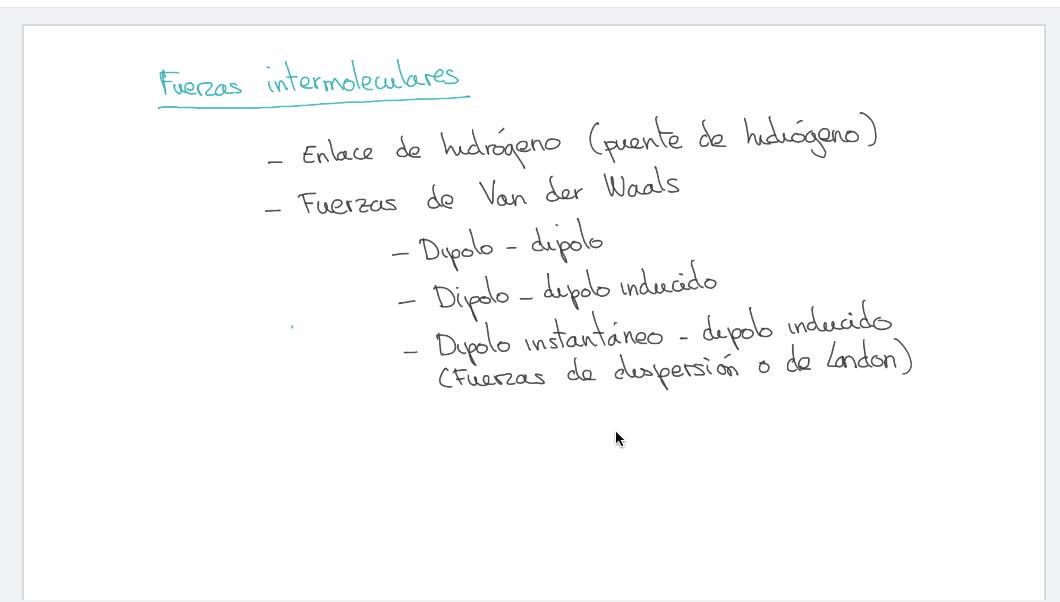 Fuerzas intermoleculares
- Enlace de hidrógeno (puente de hidrógeno)
- Fuerzas de Van der Waals
- Dipolo - dipolo
- Dipolo - dipolo inducido
- Dipolo instantáneo - dipolo inducido
(Fuerzas de dispersión o de London)